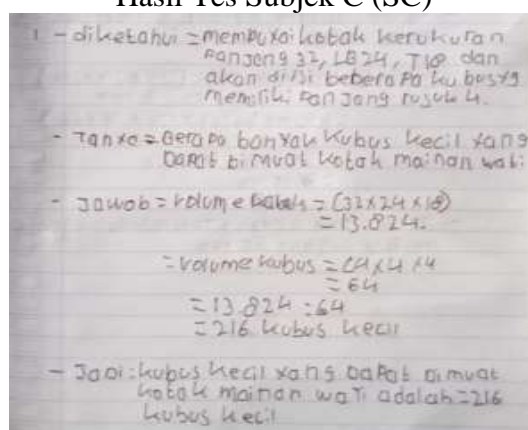 Hasil Tes Subjek C (SC)
1 - diketahui = mempuyai kotak berukuran
Panjang 32, LB 24, T18 dan
akan diisi beberapa kubus yg
memiliki Panjang rusuk 4.
- Tanya = Berapa banyak kubus kecil yang
Dapat Dimuat kotak mainan wati
- Jawab = volume balok = (32x24x18)
= 13.824.
= volume kubus = 4x4x4
= 64
= 13 824 : 64
= 216 kubus kecil
- Jadi : kubus kecil yang Dapat Dimuat
kotak mainan wati adalah = 216
kubus kecil